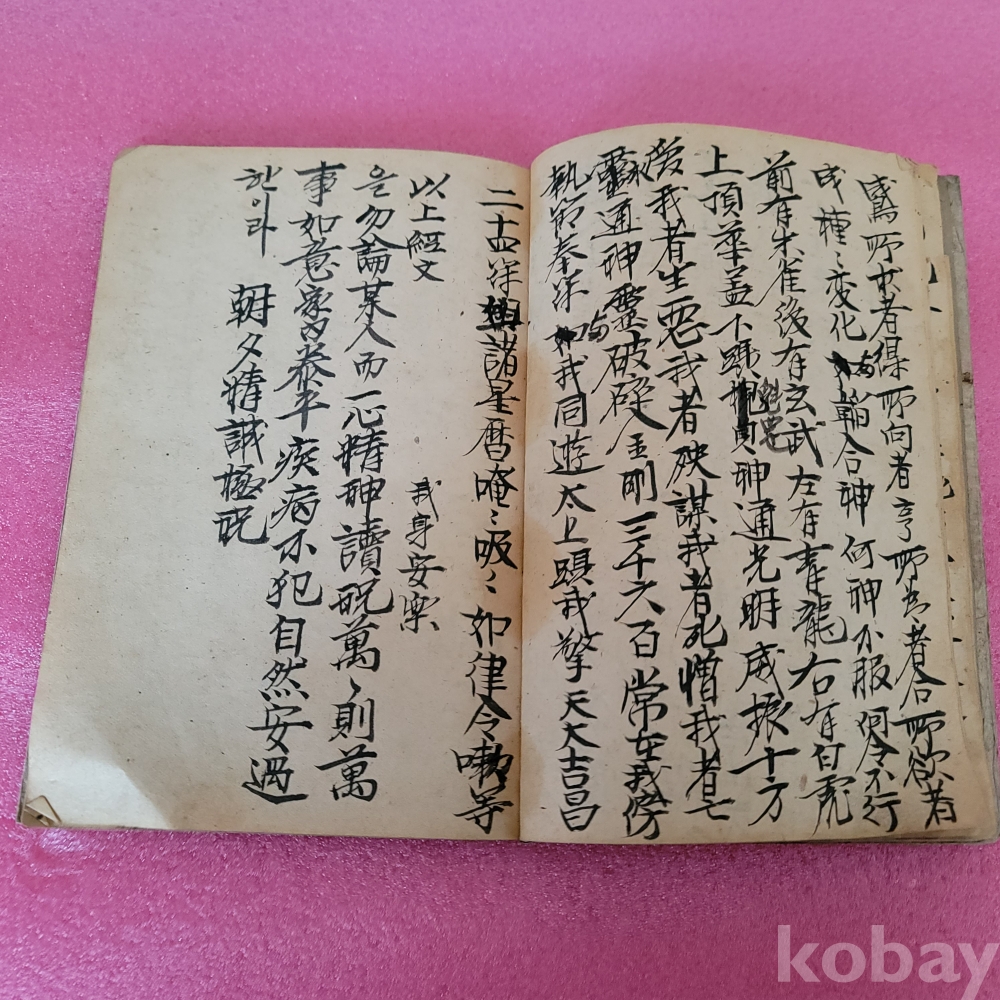 所求者得所向者亨所爲者合所欲者
成種〻変化与輪合神何神不服何令不行
前有朱雀後有玄武左有青龍右有白虎
上頂華盖下躡魁罡神通光明威振十方
愛我者生惡我者殃謀我者死憎我者亡
靈通神靈破碎金剛三千六百常在我傍
執節奉符与我同遊太上賜我擎天大吉昌
二十四諸星曆唵〻吸〻如律令等
以上經文
我身安樂
은勿論某人而一心精神讀呪萬〻則萬
事如意家內泰平疾病不犯自然安過
한이라
朝夕精誠極呪
kobay